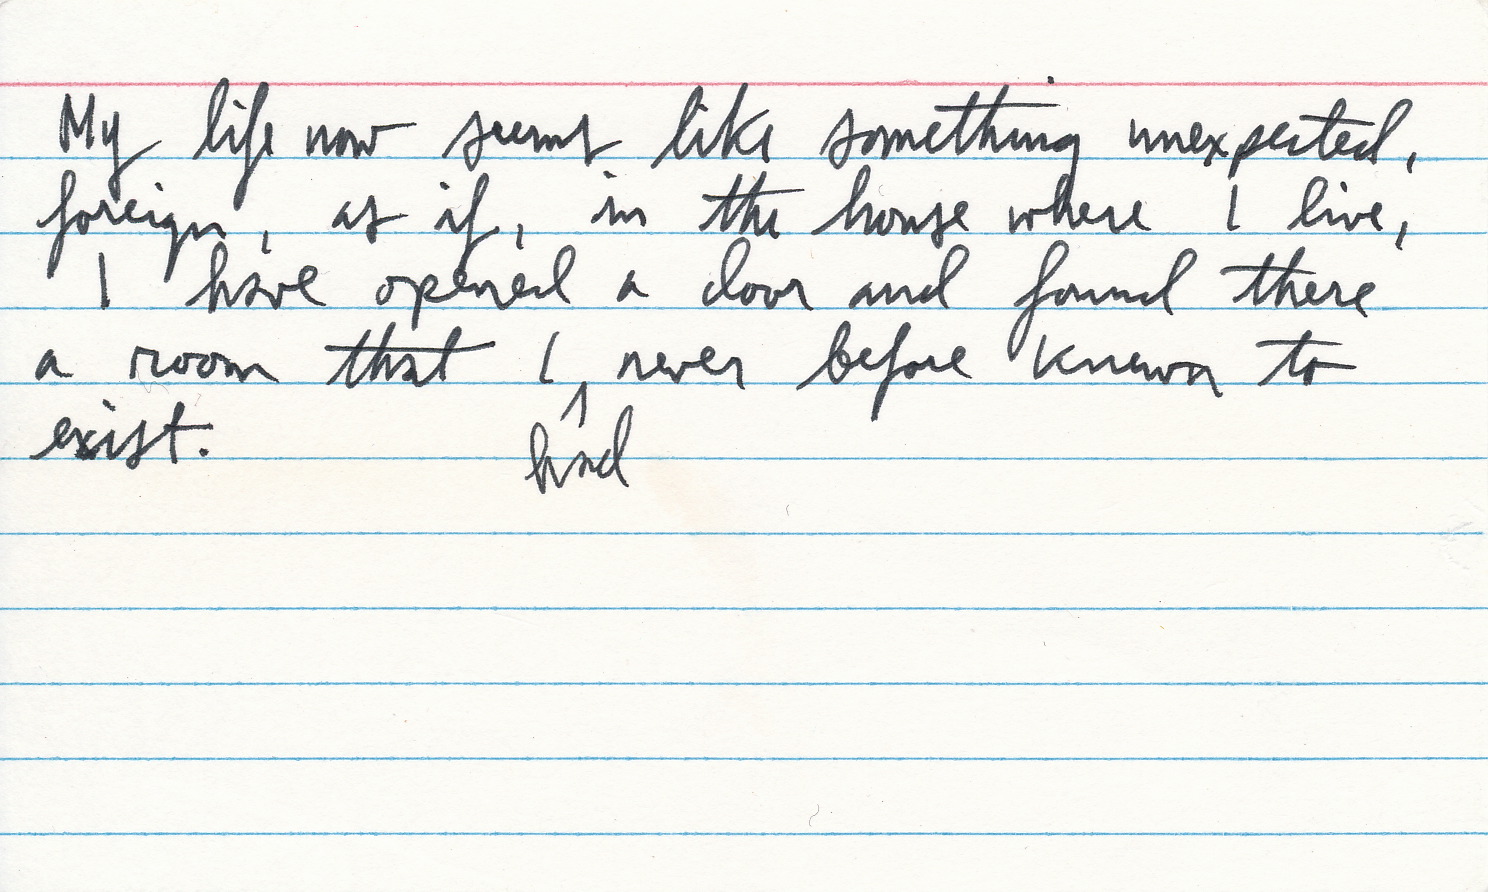 My life now seems like something unexpected,
foreign, as if, in the house where I live,
I have opened a door and found there
a room that I ^ never before known to
exist.
had